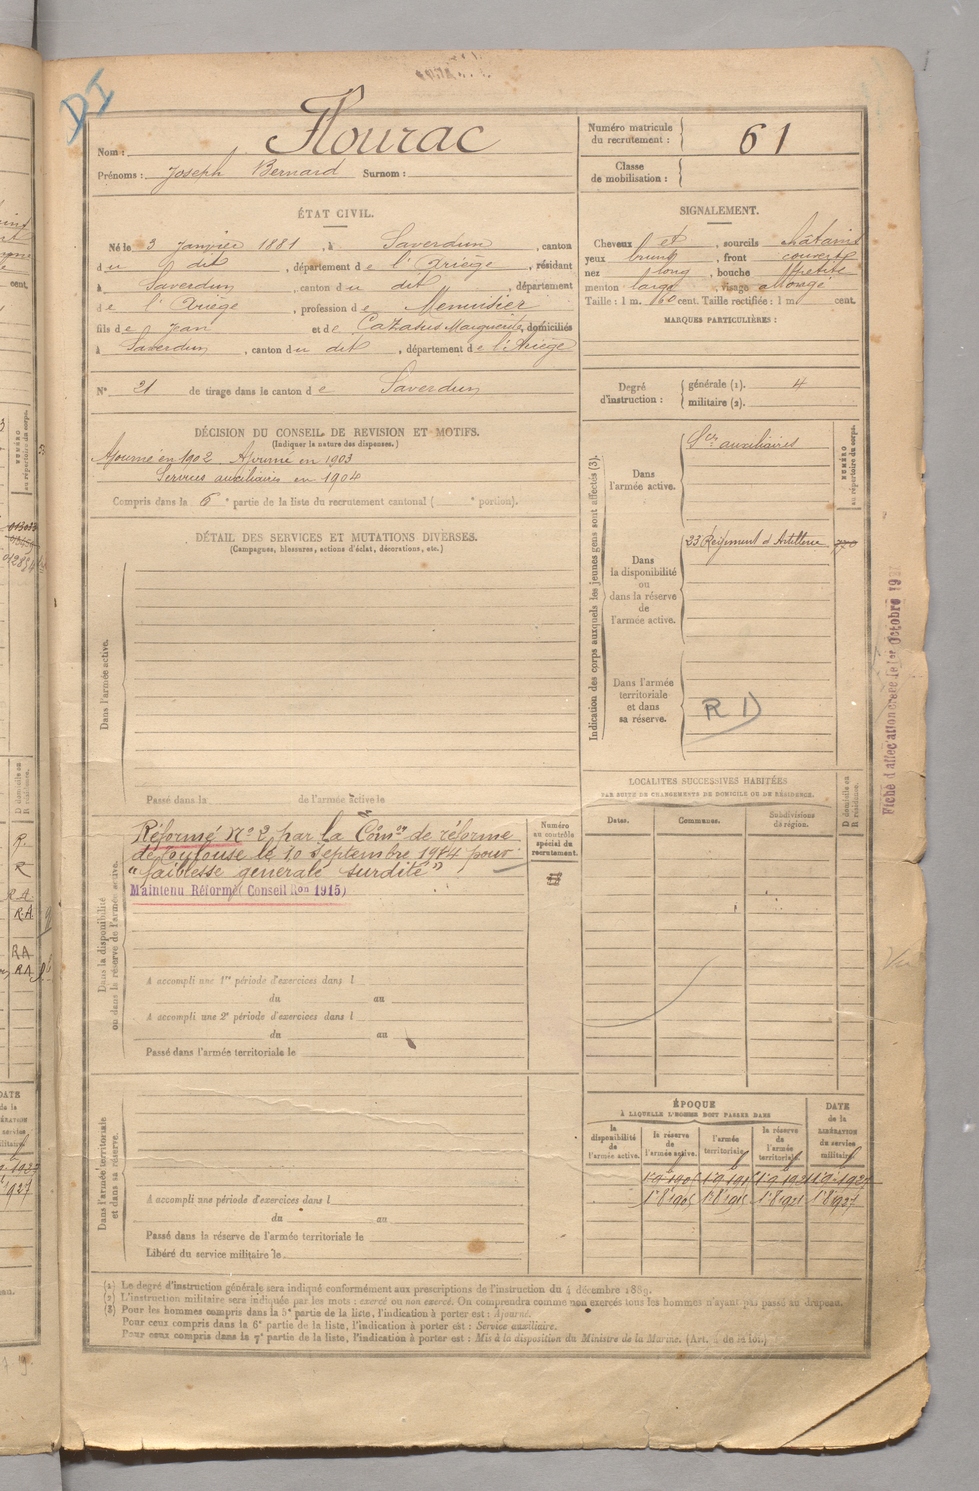 DI
Nom : Flourac
Prénoms : Joseph Bernard Surnom :
Numéro matricule du recrutement : 61
Classe de mobilisation :
ÉTAT CIVIL.
Né le 3 Janvier 1881, à Saverdun, canton
du dit, département de l'Ariège, résidant
à Saverdun, canton du dit, département
de l'Ariège, profession de Menuisier
fils de Jean et de Cazasus Marguerite, domiciliés
à Saverdun, canton du dit, département de l'Ariège
N° 21 de tirage dans le canton de Saverdun
SIGNALEMENT.
Cheveux et, sourcils châtains
yeux bruns, front couvert
nez long, bouche petite
menton large, visage allongé
Taille : 1 m. 60 cent. Taille rectifiée : 1 m. cent.
MARQUES PARTICULIÈRES :
Degré d'instruction : générale (1). 4
militaire (2).
DÉCISION DU CONSEIL DE REVISION ET MOTIFS.
(Indiquer la nature des dispenses.)
Ajourné en 1902 Ajourné en 1903
Services auxiliaires en 1904
Compris dans la 6e partie de la liste du recrutement cantonal ( e portion).
DÉTAIL DES SERVICES ET MUTATIONS DIVERSES.
(Campagnes, blessures, actions d'éclat, décorations, etc.)
Dans l'armée active.
Passé dans la de l'armée active le
Indication des corps auxquels les jeunes gens sont affectés (3).
NUMÉRO au répertoire du corps.
Dans l'armée active. Sces auxiliaires
Dans la disponibilité ou dans la réserve de l'armée active. 23 Régiment d'Artillerie
Dans l'armée territoriale et dans sa réserve. R D
LOCALITÉS SUCCESSIVES HABITÉES
PAR SUITE DE CHANGEMENTS DE DOMICILE OU DE RÉSIDENCE.
Dates. Communes. Subdivisions de région. D domicile ou R résidence.
Dans la disponibilité ou dans la réserve de l'armée active.
Réformé N° 2 par la Comon de réforme
de Toulouse le 10 septembre 1914 pour
"faiblesse générale surdité"
Maintenu Réformé (Conseil Ron 1915)
Numéro au contrôle spécial du recrutement.
A accompli une 1re période d'exercices dans l
du au
A accompli une 2e période d'exercices dans l
du au
Passé dans l'armée territoriale le
Dans l'armée territoriale et dans sa réserve.
A accompli une période d'exercices dans l
du au
Passé dans la réserve de l'armée territoriale le
Libéré du service militaire le
ÉPOQUE
À LAQUELLE L'HOMME DOIT PASSER DANS
la disponibilité de l'armée active. la réserve de l'armée active. l'armée territoriale. la réserve de l'armée territoriale.
DATE de la LIBÉRATION du service militaire.
1·8·1905 1·8·1915 1·8·1921 1·8·1927
(1) Le degré d'instruction générale sera indiqué conformément aux prescriptions de l'instruction du 4 décembre 1889.
(2) L'instruction militaire sera indiquée par les mots : exercé ou non exercé. On comprendra comme non exercés tous les hommes n'ayant pas passé au drapeau.
(3) Pour les hommes compris dans la 5e partie de la liste, l'indication à porter est : Ajourné.
Pour ceux compris dans la 6e partie de la liste, l'indication à porter est : Service auxiliaire.
Pour ceux compris dans la 7e partie de la liste, l'indication à porter est : Mis à la disposition du Ministre de la Marine. (Art. 4 de la loi.)